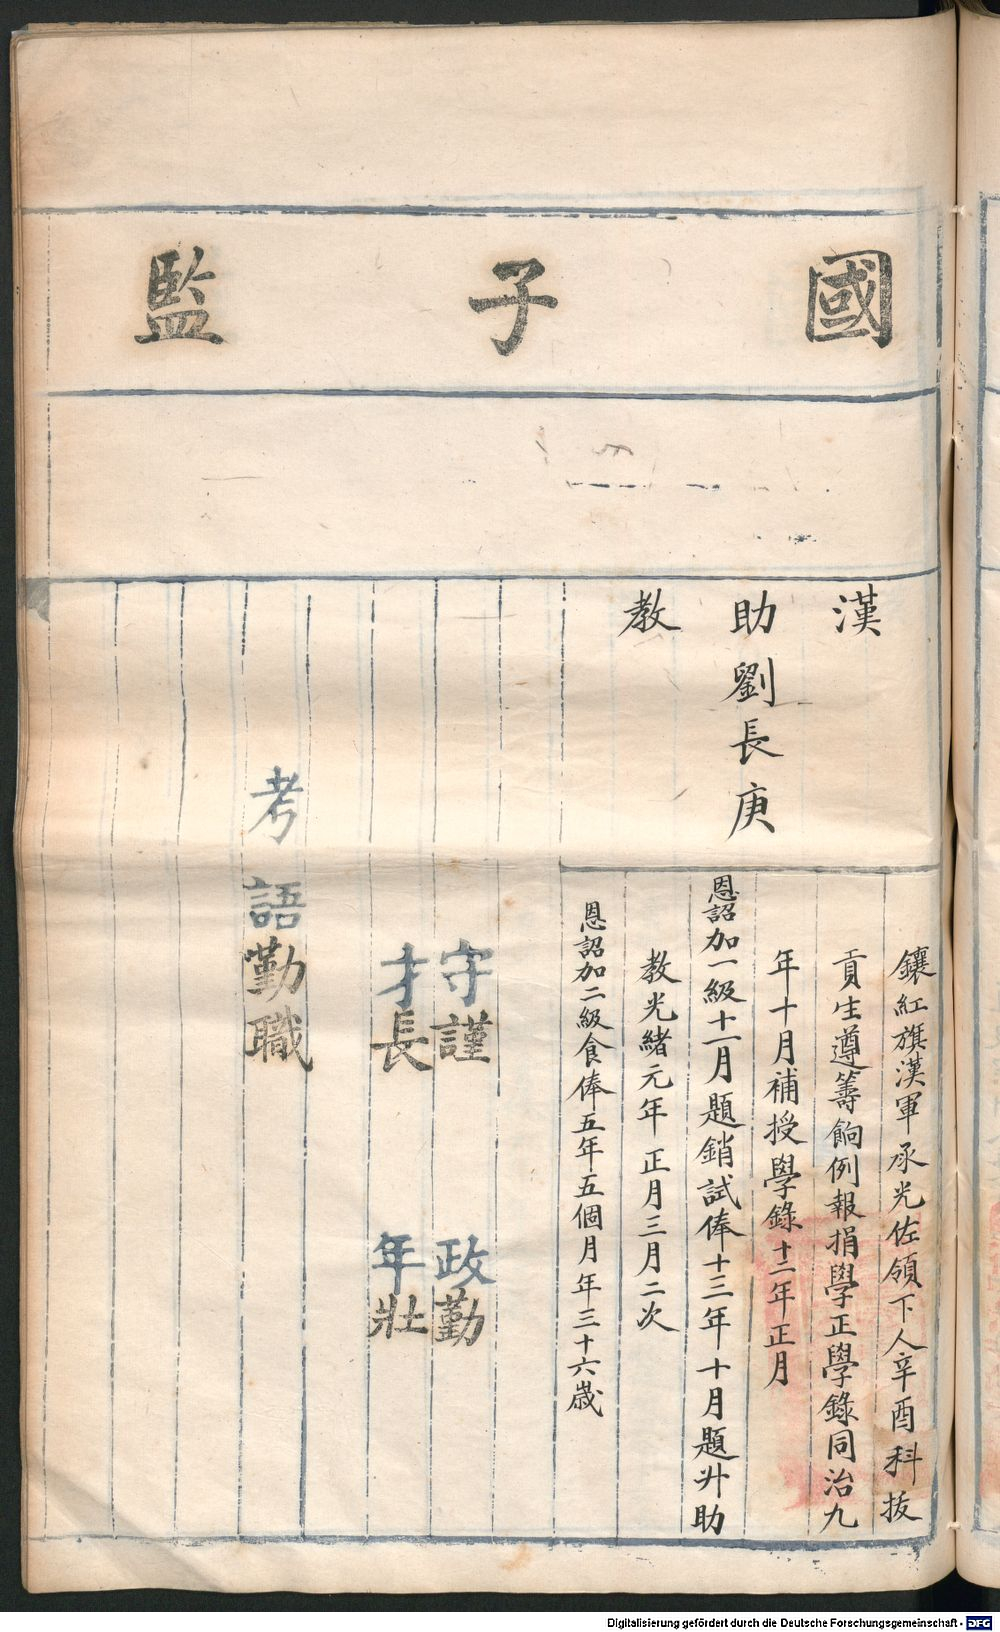 國子監
漢助教
劉長庚
鑲紅旗漢軍承光佐領下人辛酉科拔
貢生遵籌餉例報捐學正學錄同治九
年十月補授學錄十二年正月
恩詔加一級十一月題銷試俸十三年十月題升助
教光緒元年正月三月二次
恩詔加二級食俸五年五個月年三十六歲
守謹 政勤
才長 年壯
考語勤職
Digitalisierung gefördert durch die Deutsche Forschungsgemeinschaft - DFG